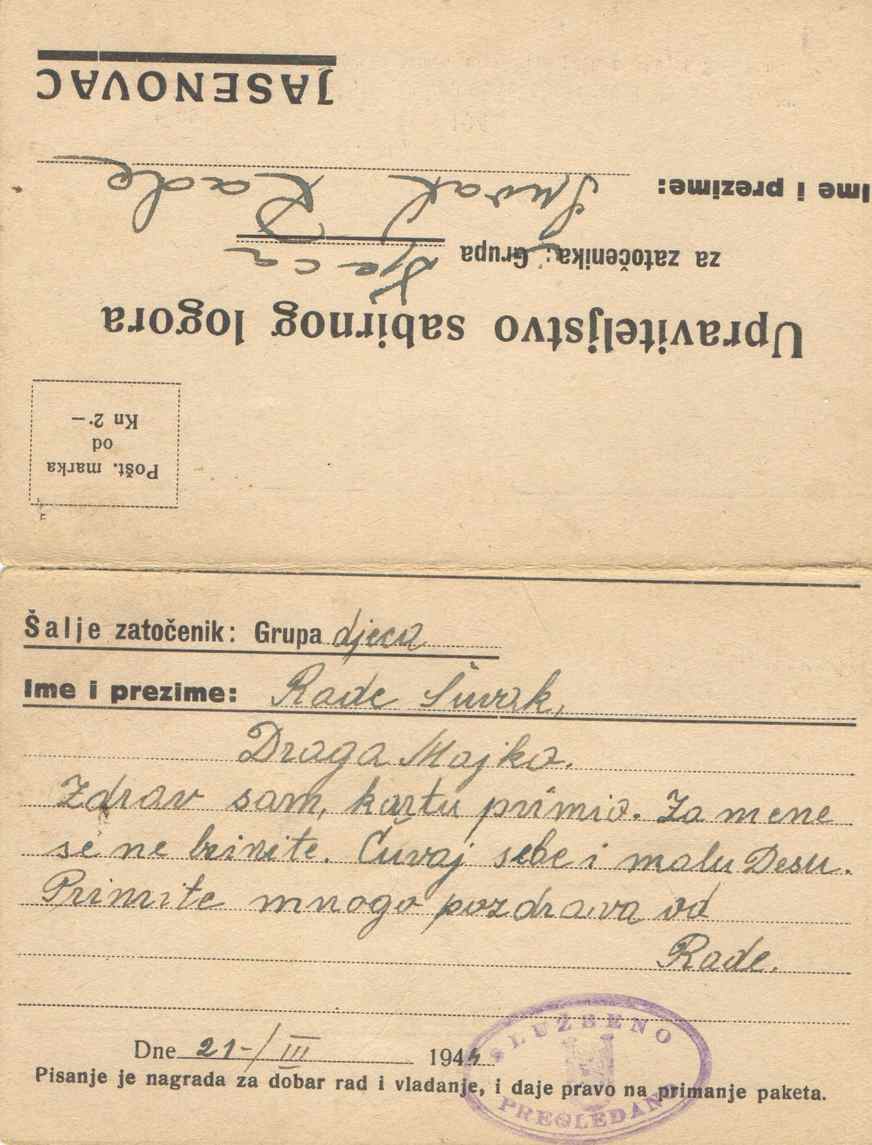 Upraviteljstvo sabirnog logora
za zatočenika: Grupa Djeca
Ime i prezime: Šuvak Rade
JASENOVAC
Pošt. marka
od
Kn 2·—
Šalje zatočenik: Grupa djeca
Ime i prezime: Rade Šuvak,
Draga Majko.
Zdrav sam, kartu primio. Za mene
se ne brinite. Čuvaj sebe i malu Desu.
Primite mnogo pozdrava od
Rade.
Dne 21-/III 1944.
Pisanje je nagrada za dobar rad i vladanje, i daje pravo na primanje paketa.
SLUŽBENO
PREGLEDANO